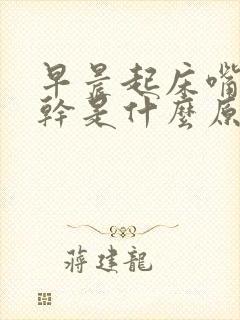 早晨起床嘴
幹是什麼原
蔣建龍